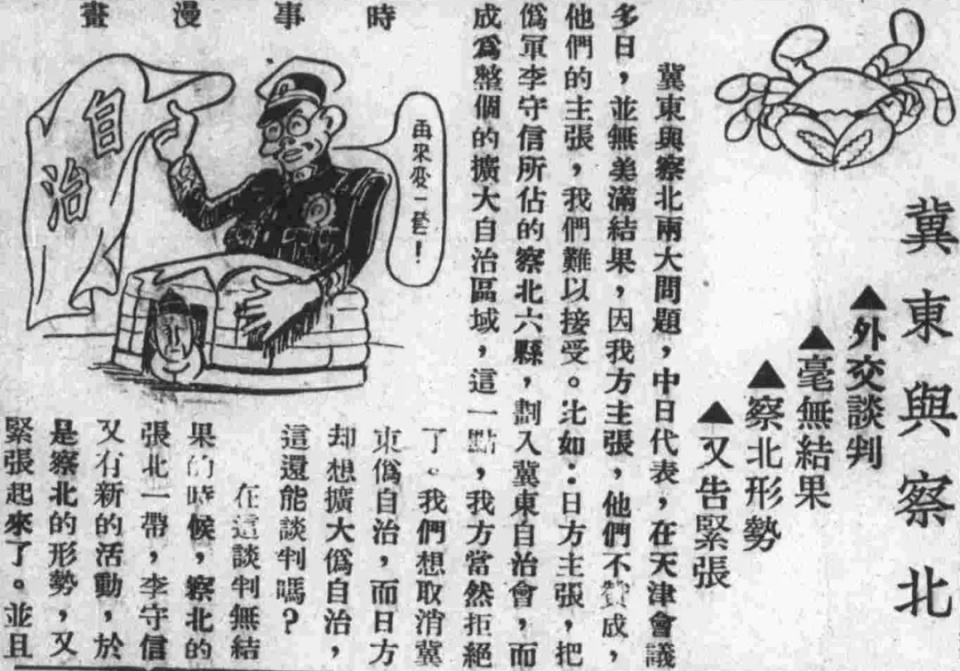 冀東與察北
▲外交談判
▲毫無結果
▲察北形勢
▲又告緊張
冀東與察北兩大問題，中日代表，在天津會議
多日，並無美滿結果，因我方主張，他們不贊成，
他們的主張，我們難以接受。比如：日方主張，把
僞軍李守信所佔的察北六縣，劃入冀東自治會，而
成爲整個的擴大自治區域，這一點，我方當然拒絕
了。我們想取消冀
東僞自治，而日方
却想擴大僞自治，
這還能談判嗎？
在這談判無結
果的時候，察北的
張北一帶，李守信
又有新的活動，於
是察北的形勢，又
緊張起來了。並且
時事漫畫
再來變一套！
自治